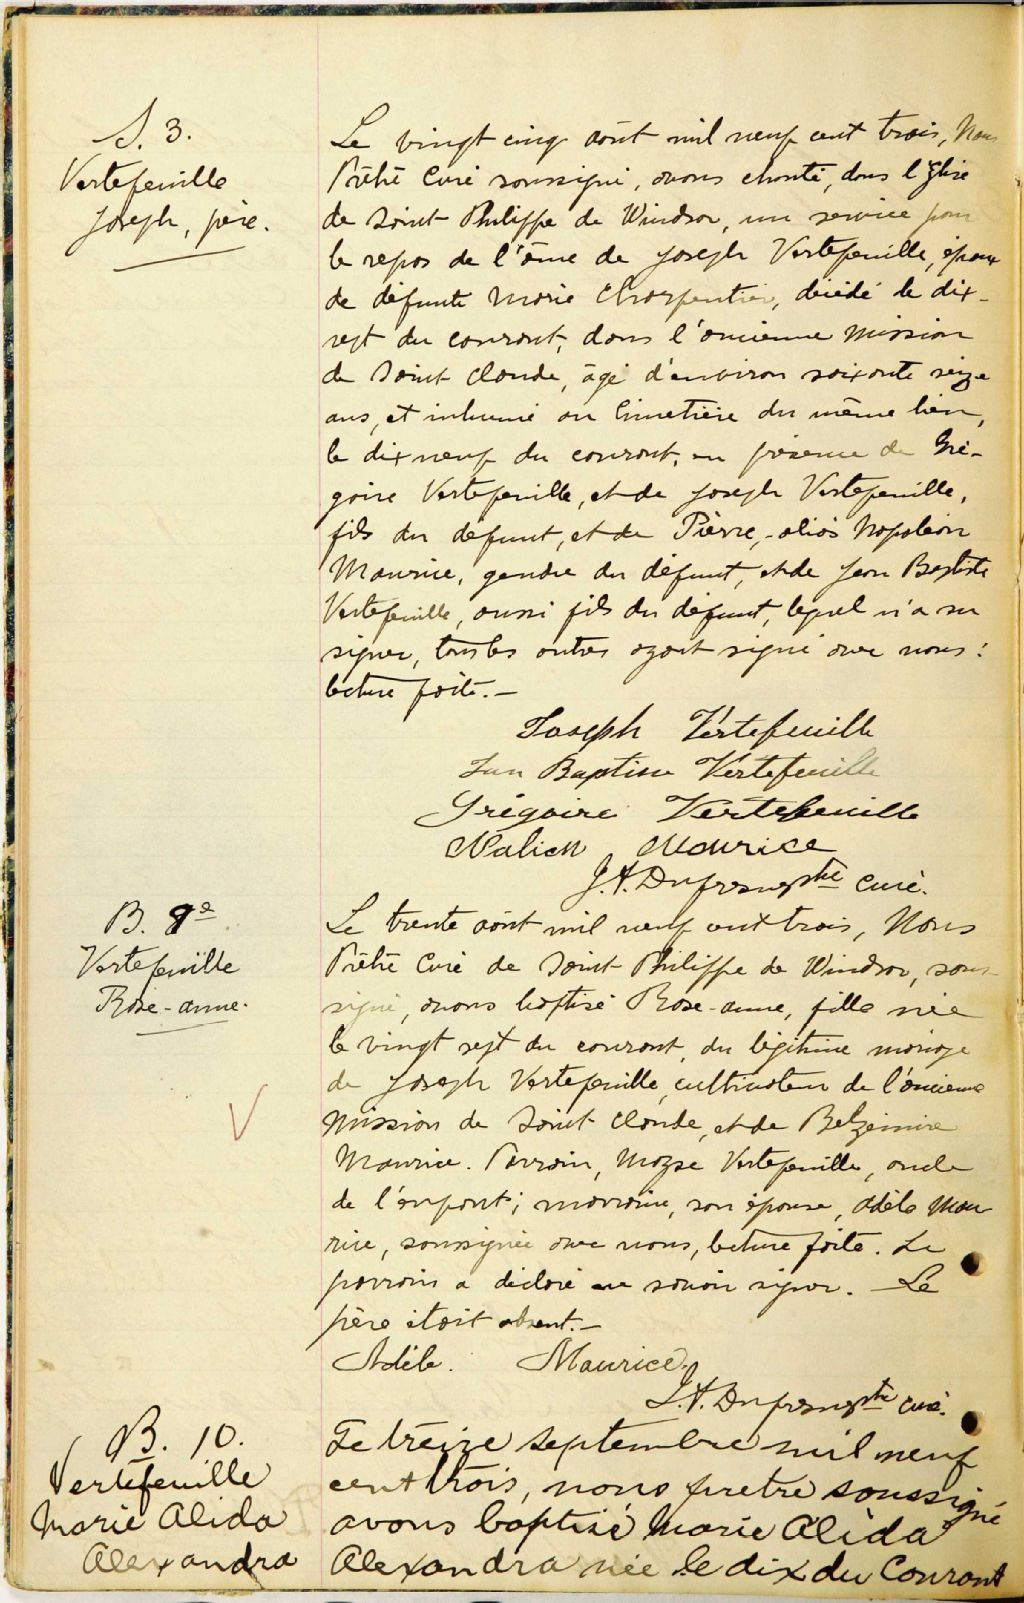 S. 3.
Vertefeuille
Joseph, père.
Le vingt cinq août mil neuf cent trois, Nous
Prêtre Curé soussigné, avons chanté, dans l'Eglise
de Saint Philippe de Windsor, un service pour
le repos de l'âme de Joseph Vertefeuille, époux
de défunte Marie Charpentier, décédé le dix-
sept du courant, dans l'ancienne Mission
de Saint Claude, âgé d'environ soixante seize
ans, et inhumé au Cimetière du même lieu,
le dix neuf du courant, en présence de Gré-
goire Vertefeuille, et de Joseph Vertefeuille,
fils du défunt, et de Pierre, -aliàs Napoléon
Maurice, gendre du défunt, et de Jean Baptiste
Vertefeuille, aussi fils du défunt, lequel n'a su
signer, tous les autres ayant signé avec nous:
lecture faite.—
Joseph Vertefeuille
Jan Baptise Vertefeuille
Grégoire Vertefeuille
Maurice
J.A. Dufresne ptre curé.
B. 9e
Vertefeuille
Rose-anne.
Le trente août mil neuf cent trois, Nous
Prêtre Curé de Saint Philippe de Windsor, sous-
signé, avons baptisé Rose-anne, fille née
le vingt sept du courant, du légitime mariage
de Joseph Vertefeuille, cultivateur de l'ancienne
Mission de Saint Claude, et de Belzémire
Maurice. Parrain, Moyse Vertefeuille, oncle
de l'enfant; marraine, son épouse, Adèle Mau
rice, soussignée avec nous, lecture faite. Le
parrain a déclaré ne savoir signer. — Le
père était absent.—
Adèle. Maurice.
J.A. Dufresne ptre curé.
B. 10.
Vertefeuille
Marie Alida
Alexandra
Le treize septembre mil neuf
cent trois, nous pretre soussigné
avons baptisé Marie Alida
Alexandra née le dix du Courant